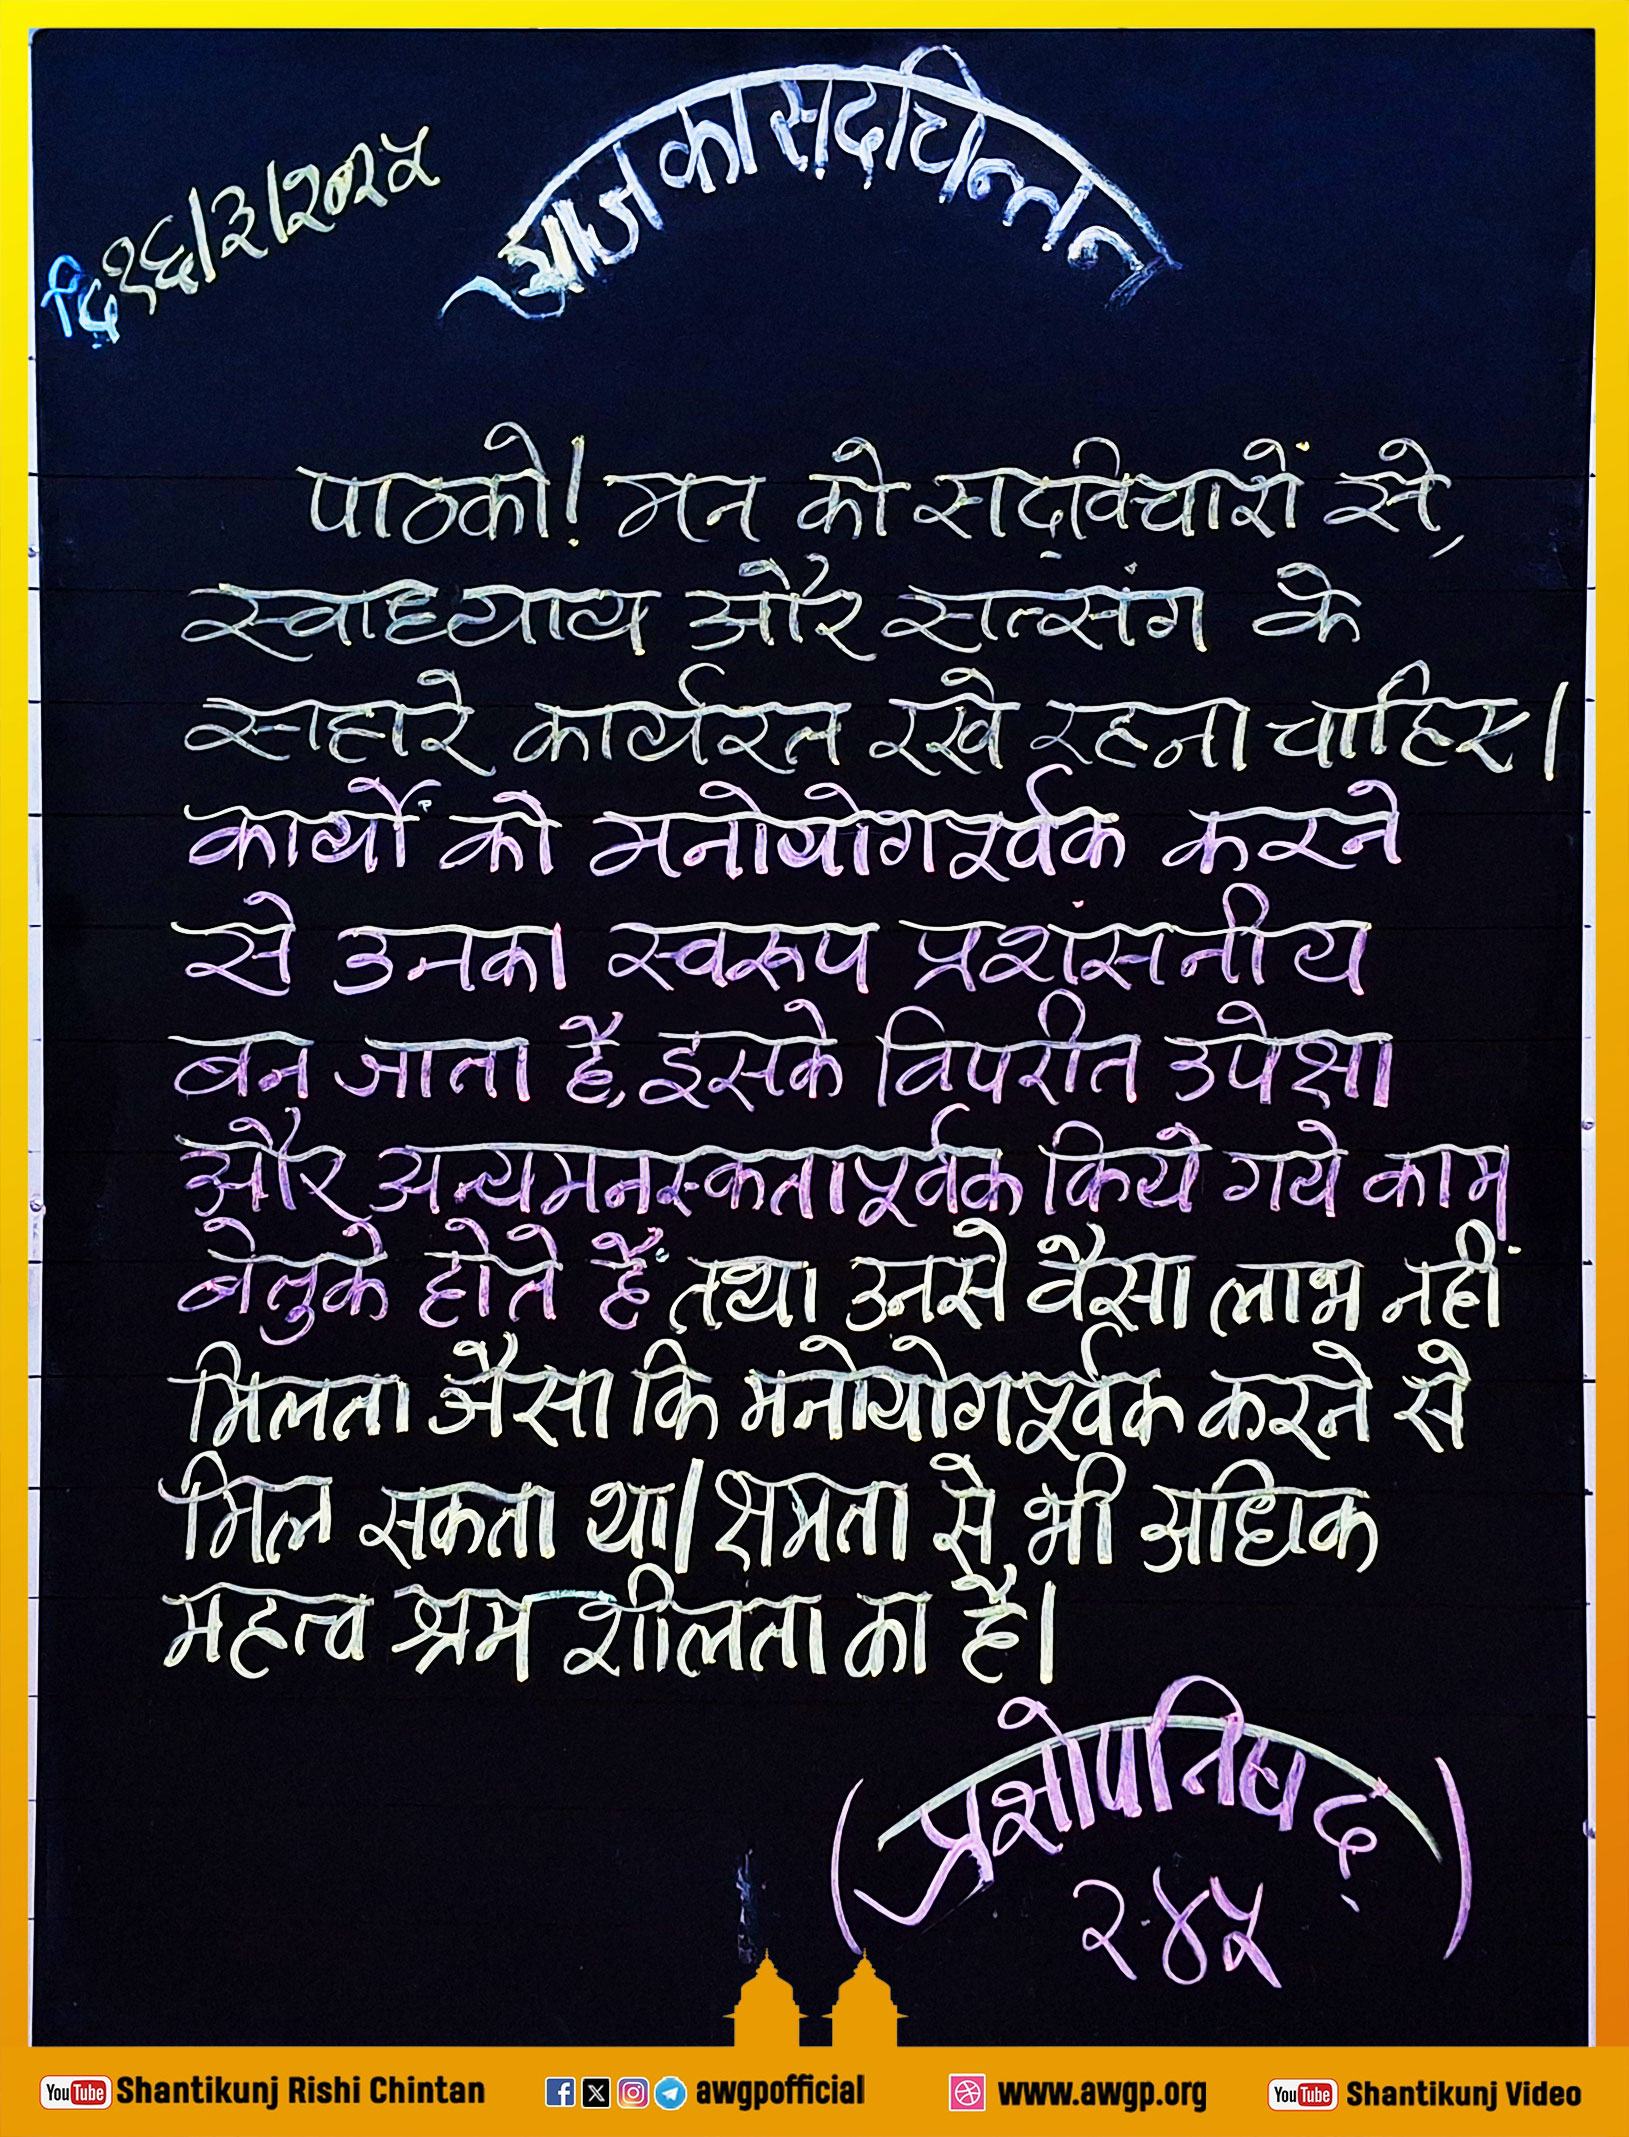 आज का सद्चिन्तन
दि १६/३/२०२५
पाठको! मन को सद्‌विचारों से,
स्वाध्याय और सत्संग के
सहारे कार्यरत रखे रहना चाहिए।
कार्यों को मनोयोगपूर्वक करने
से उनका स्वरूप प्रशंसनीय
बन जाता है, इसके विपरीत उपेक्षा
और अन्यमनस्कतापूर्वक किये गये काम
बेतुके होते हैं तथा उनसे वैसा लाभ नहीं
मिलता जैसा कि मनोयोगपूर्वक करने से
मिल सकता था। क्षमता से भी अधिक
महत्व श्रम शीलता का है।
(प्रज्ञोपनिषद्
२.४५)
YouTube Shantikunj Rishi Chintan awgpofficial www.awgp.org YouTube Shantikunj Video